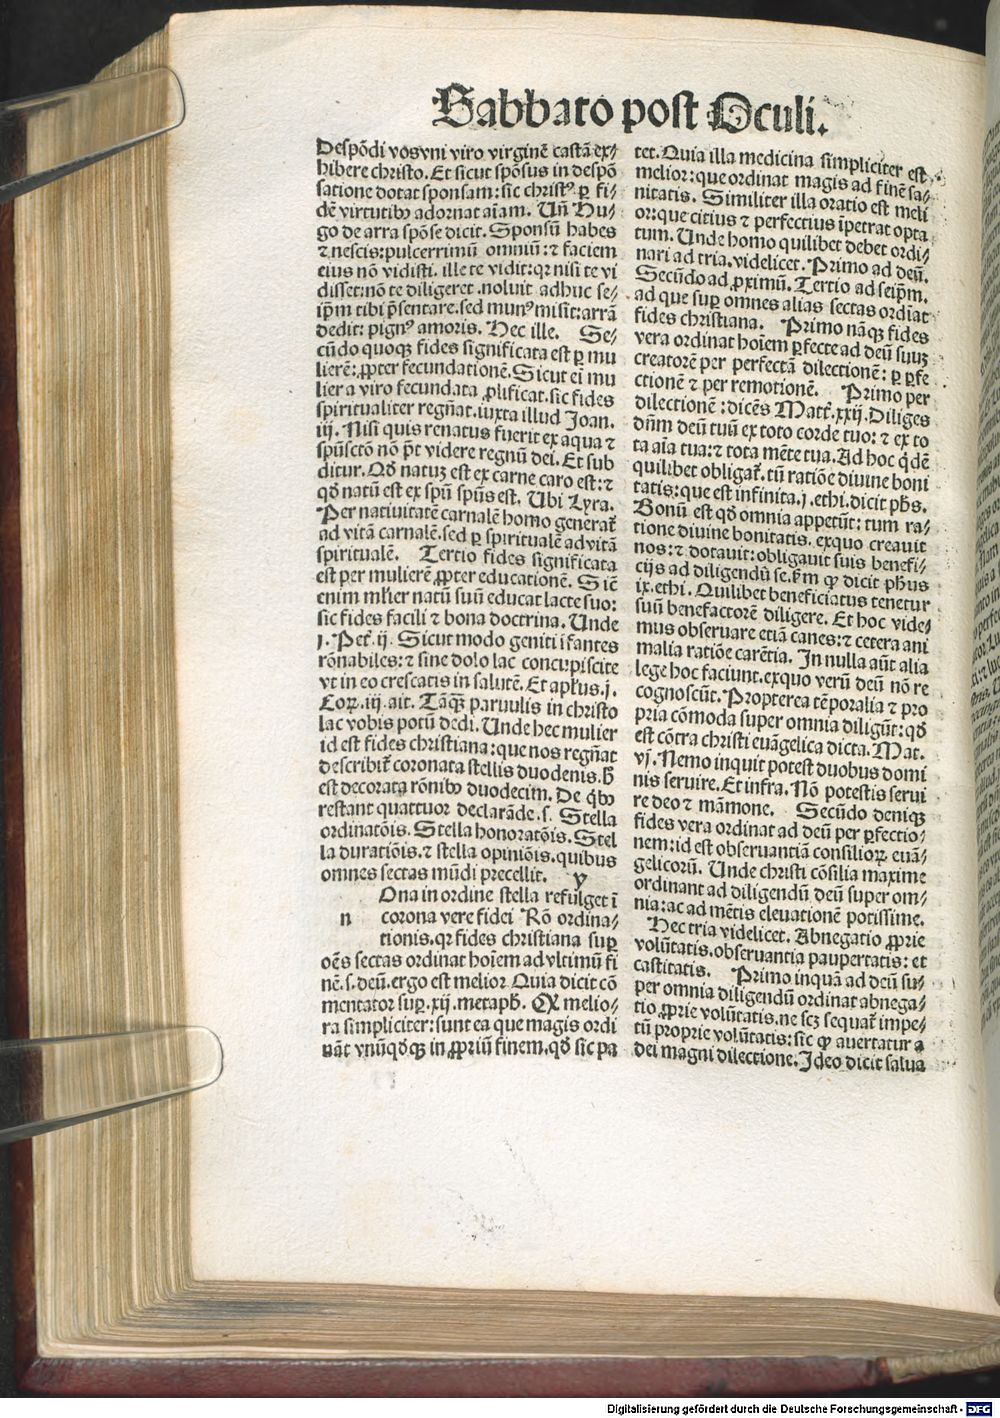 Sabbato post Oculi.
Despōdi vos vni viro virginē castā ex⸗
hibere christo. Et sicut spōsus in despō
satione dotat sponsam: sic christꝰ ꝑ fi⸗
dē virtutibꝰ adornat aīam. Uñ Hu⸗
go de arra spōse dicit. Sponsū habes
⁊ nescis: pulcerrimū omniū: ⁊ faciem
eius nō vidisti. ille te vidit: qꝛ nisi te vi
disset: nō te diligeret. noluit adhuc se⸗
ip̄m tibi p̄sentare. sed munꝰ misit: arrā
dedit: pignꝰ amoris. Hec ille. Se⸗
cūdo quoqꝫ fides significata est ꝑ mu
lierē: ꝓpter fecundationē. Sicut eī mu
lier a viro fecundata ꝓlificat. sic fides
spiritualiter regn̄at. iuxta illud Joan.
iij. Nisi quis renatus fuerit ex aqua ⁊
spūsctō nō pt̄ videre regnū dei. Et sub
ditur. Qḋ natuꝫ est ex carne caro est: ⁊
qḋ natū est ex spū spūs est. Ubi Lyra.
Per natiuitatē carnalē homo generat̄
ad vitā carnalē. sed ꝑ spiritualē ad vitā
spiritualē. Tertio fides significata
est per mulierē ꝓpter educationē. Sic̄
enim ml̄ier natū suū educat lacte suo:
sic fides facili ⁊ bona doctrina. Unde
j. Pet̄. ij. Sicut modo geniti īfantes
rōnabiles: ⁊ sine dolo lac concupiscite
vt in eo crescatis in salutē. Et apl̄us. j.
Coꝝ. iij. ait. Tāqꝫ paruulis in christo
lac vobis potū dedi. Unde hec mulier
id est fides christiana: que nos regn̄at
describit̄ coronata stellis duodenis. h̄
est decorata rōnibꝰ duodecim. De q̇bꝰ
restant quattuor declarāde. s. Stella
ordinatōis. Stella honoratōis. Stel
la duratiōis. ⁊ stella opiniōis. quibus
omnes sectas mūdi precellit. y
Ona in ordine stella refulget ī
n corona vere fidei Rō ordina⸗
tionis. qꝛ fides christiana suꝑ
oēs sectas ordinat hoīem ad vltimū fi
nē. s. deū. ergo est melior Quia dicit cō
mentator suꝑ. xij. metaph̄. Qꝫ melio⸗
ra simpliciter: sunt ea que magis ordi
nāt vnūqḋqꝫ in ꝓpriū finem. qḋ sic pa
tet. Quia illa medicina simpliciter est
melior: que ordinat magis ad finē sa⸗
nitatis. Similiter illa oratio est meli
or: que citius ⁊ perfectius īpetrat opta
tum. Unde homo quilibet debet ordi⸗
nari ad tria. videlicet. Primo ad deū.
Secūdo ad ꝓximū. Tertio ad seip̄m.
ad que suꝑ omnes alias sectas ordīat
fides christiana. Primo nāqꝫ fides
vera ordinat hoīem ꝑfecte ad deū suuꝫ
creatorē per perfectā dilectionē: ꝑ ꝑfe
ctionē ⁊ per remotionē. Primo per
dilectionē: dicēs Matt̄. xxij. Diliges
dn̄m deū tuū ex toto corde tuo: ⁊ ex to
ta aīa tua: ⁊ tota mēte tua. Ad hoc q̇dē
quilibet obligat̄. tū ratiōe diuine boni
tatis: que est infinita. j. ethi. dicit ph̄s.
Bonū est qḋ omnia appetūt: tum ra⸗
tione diuine bonitatis. exquo creauit
nos: ⁊ dotauit: obligauit suis benefi⸗
cijs ad diligendū se. km̄ ꝙ dicit ph̄us
ix. ethi. Quilibet beneficiatus tenetur
suū benefactorē diligere. Et hoc vide⸗
mus obseruare etiā canes: ⁊ cetera ani
malia ratiōe carētia. In nulla aūt alia
lege hoc faciunt. exquo verū deū nō re
cognoscūt. Propterea tēporalia ⁊ pro
pria cōmoda super omnia diligūt: qḋ
est cōtra christi euāgelica dicta. Mat.
vj. Nemo inquit potest duobus domi
nis seruire. Et infra. Nō potestis serui
re deo ⁊ māmone. Secūdo deniqꝫ
fides vera ordinat ad deū per ꝑfectio⸗
nem: id est obseruantiā consilioꝝ euā⸗
gelicorū. Unde christi cōsilia maxime
ordinant ad diligendū deū super om⸗
nia: ac ad mētis eleuationē potissime.
Hec tria videlicet. Abnegatio ꝓprie
volūtatis. obseruantia paupertatis: et
castitatis. Primo inquā ad deū su⸗
per omnia diligendū ordinat abnega⸗
tio ꝓprie volūtatis. ne scꝫ sequat̄ impe⸗
tū proprie volūtatis: sic ꝙ auertatur a
dei magni dilectione. Ideo dicit salua
Digitalisierung gefördert durch die Deutsche Forschungsgemeinschaft - DFG